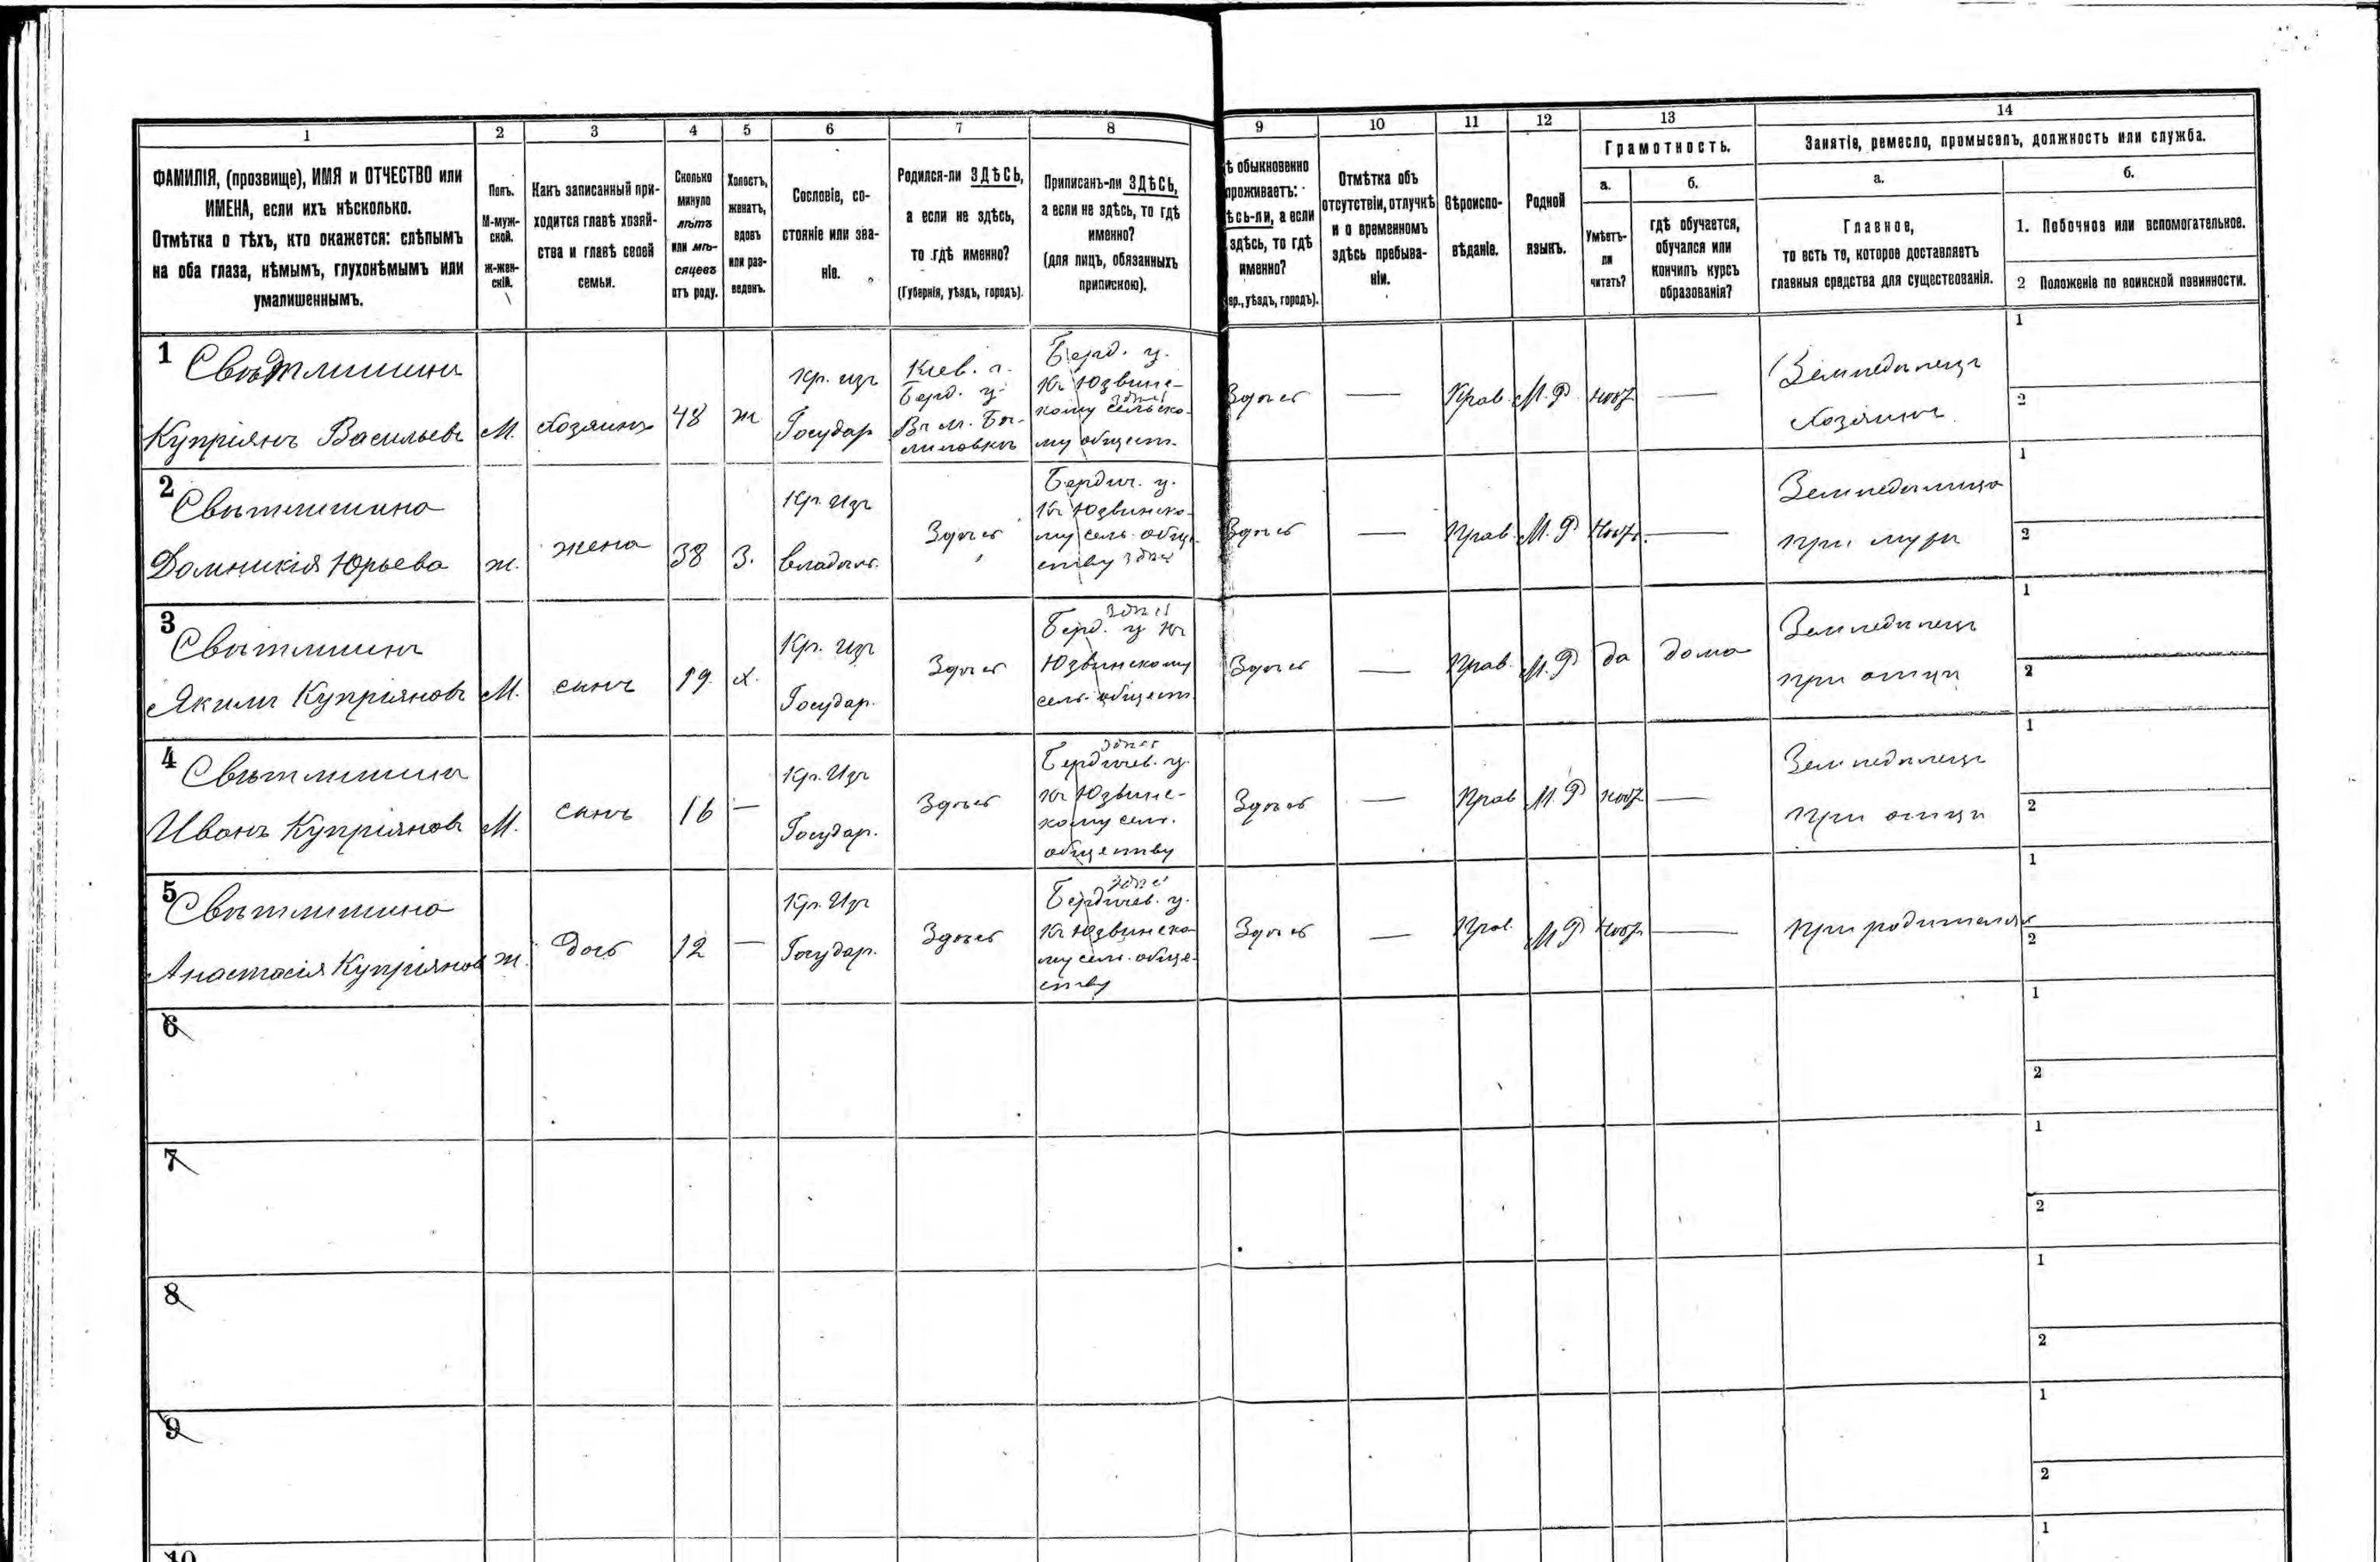 1 2 3 4 5 6 7 8 9 10 11 12 13 14
ФАМИЛІЯ, (прозвище), ИМЯ и ОТЧЕСТВО или
ИМЕНА, если ихъ нѣсколько.
Отмѣтка о тѣхъ, кто окажется: слѣпымъ
на оба глаза, нѣмымъ, глухонѣмымъ или
умалишеннымъ.
Полъ.
М-муж-
ской.
ж-жен-
скій.
Какъ записанный при-
ходится главѣ хозяй-
ства и главѣ своей
семьи.
Сколько
минуло
лѣтъ
или мѣ-
сяцевъ
отъ роду.
Холостъ,
женатъ,
вдовъ
или раз-
веденъ.
Сословіе, со-
стояніе или зва-
ніе.
Родился-ли ЗДѢСЬ,
а если не здѣсь,
то гдѣ именно?
(Губернія, уѣздъ, городъ).
Приписанъ-ли ЗДѢСЬ,
а если не здѣсь, то гдѣ
именно?
(для лицъ, обязанныхъ
припискою).
ѣ обыкновенно
проживаетъ:
ѣсь-ли, а если
здѣсь, то гдѣ
именно?
ер., уѣздъ, городъ).
Отмѣтка объ
отсутствіи, отлучкѣ
и о временномъ
здѣсь пребыва-
ніи.
Вѣроиспо-
вѣданіе.
Родной
языкъ.
Грамотность.
а.
Умѣетъ-
ли
читать?
б.
гдѣ обучается,
обучался или
кончилъ курсъ
образованія?
Занятіе, ремесло, промыселъ, должность или служба.
а.
Главное,
то есть то, которое доставляетъ
главныя средства для существованія.
б.
1. Побочное или вспомогательное.
2 Положеніе по воинской повинности.
1
Купріянъ Васильевъ
М.
хозяинъ
48
ж
Кр. изъ
Государ
Кіев. г.
Берд. у.
Берд. у.
къ Юзвинс-
кому сельско-
му общест.
здѣсь
Здѣсь
—
Прав.
М. Р
нѣтъ
—
Земледѣлецъ
Хозяинъ
1
2
2
Свѣтлишина
Домникія Юрьева
ж.
жена
38
З.
Кр. изъ
владѣл.
Здѣсь
Бердич. у.
къ Юзвинско-
му сель. обще-
ству здѣсь
Здѣсь
—
Прав.
М. Р
Нѣтъ
—
Земледѣлица
при мужѣ
1
2
3
Свѣтлишинъ
Якимъ Купріяновъ
М.
сынъ
19.
х.
Кр. изъ
Государ.
Здѣсь
здѣсь
Берд. у къ
Юзвинскому
сель. общест.
Здѣсь
—
Прав.
М. Р
да
дома
Земледѣлецъ
при отцѣ
1
2
4
Свѣтлишинъ
Иванъ Купріяновъ
М.
сынъ
16
—
Кр. Изъ
Государ.
Здѣсь
здѣсь
Бердичев. у.
къ Юзвинс-
кому сель.
обществу
Здѣсь
—
Прав
М. Р
нѣтъ
—
Земледѣлецъ
при отцѣ
1
2
5
Свѣтлишина
Анастасія Купріянов
ж.
Дочь
12
—
Кр. Изъ
Государ.
Здѣсь
здѣсь
Бердичев. у.
къ Юзвинско-
му сель. обще-
ству
Здѣсь
—
Прав.
М Р
Нѣтъ
—
при родителях
1
2
6
1
2
7
1
2
8
1
2
9
1
2
10
1